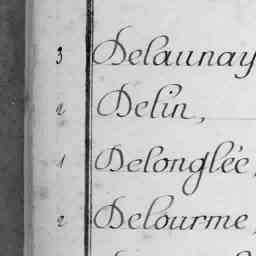 3 Delaunay
2 Delin,
1 Delonglée,
2 Delourme,